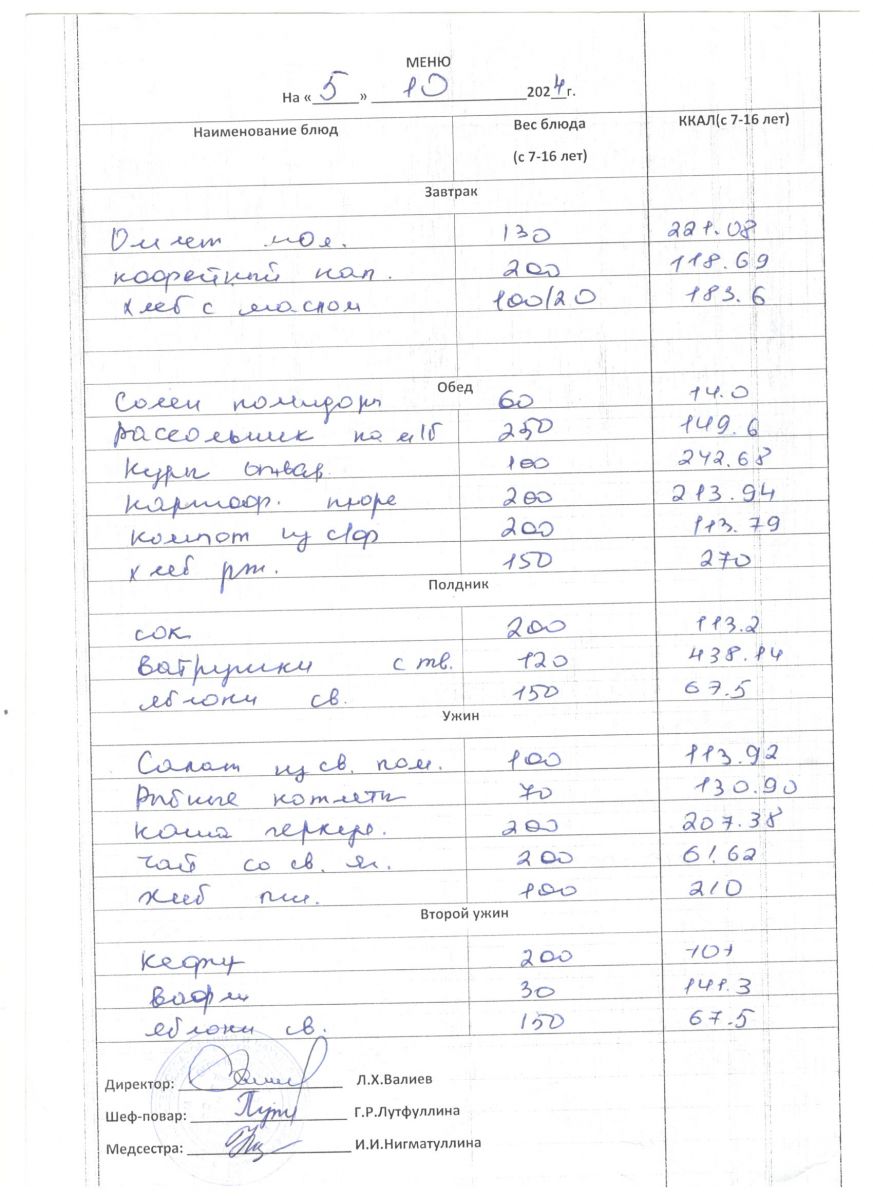 МЕНЮ
На « 5 » 10 2024 г.
Наименование блюд Вес блюда (с 7-16 лет) ККАЛ(с 7-16 лет)
Завтрак
Омлет мол. 130 221.08
кофейный нап. 200 118.69
хлеб с маслом 100/20 183.6
Обед
Солен помидоры 60 14.0
рассольник на м/б 250 149.6
Куры отвар. 100 242.68
картоф. пюре 200 213.94
компот из с/ф 200 113.79
хлеб рж. 150 270
Полдник
сок 200 113.2
Ватрушки с тв. 120 438.14
яблоки св. 150 67.5
Ужин
Салат из св. пом. 100 113.92
Рыбные котлеты 70 130.90
каша геркул. 200 207.38
чай со св. я. 200 61.62
хлеб пш. 100 210
Второй ужин
кефир 200 101
вафли 30 141.3
яблоки св. 150 67.5
Директор: Л.Х.Валиев
Шеф-повар: Г.Р.Лутфуллина
Медсестра: И.И.Нигматуллина